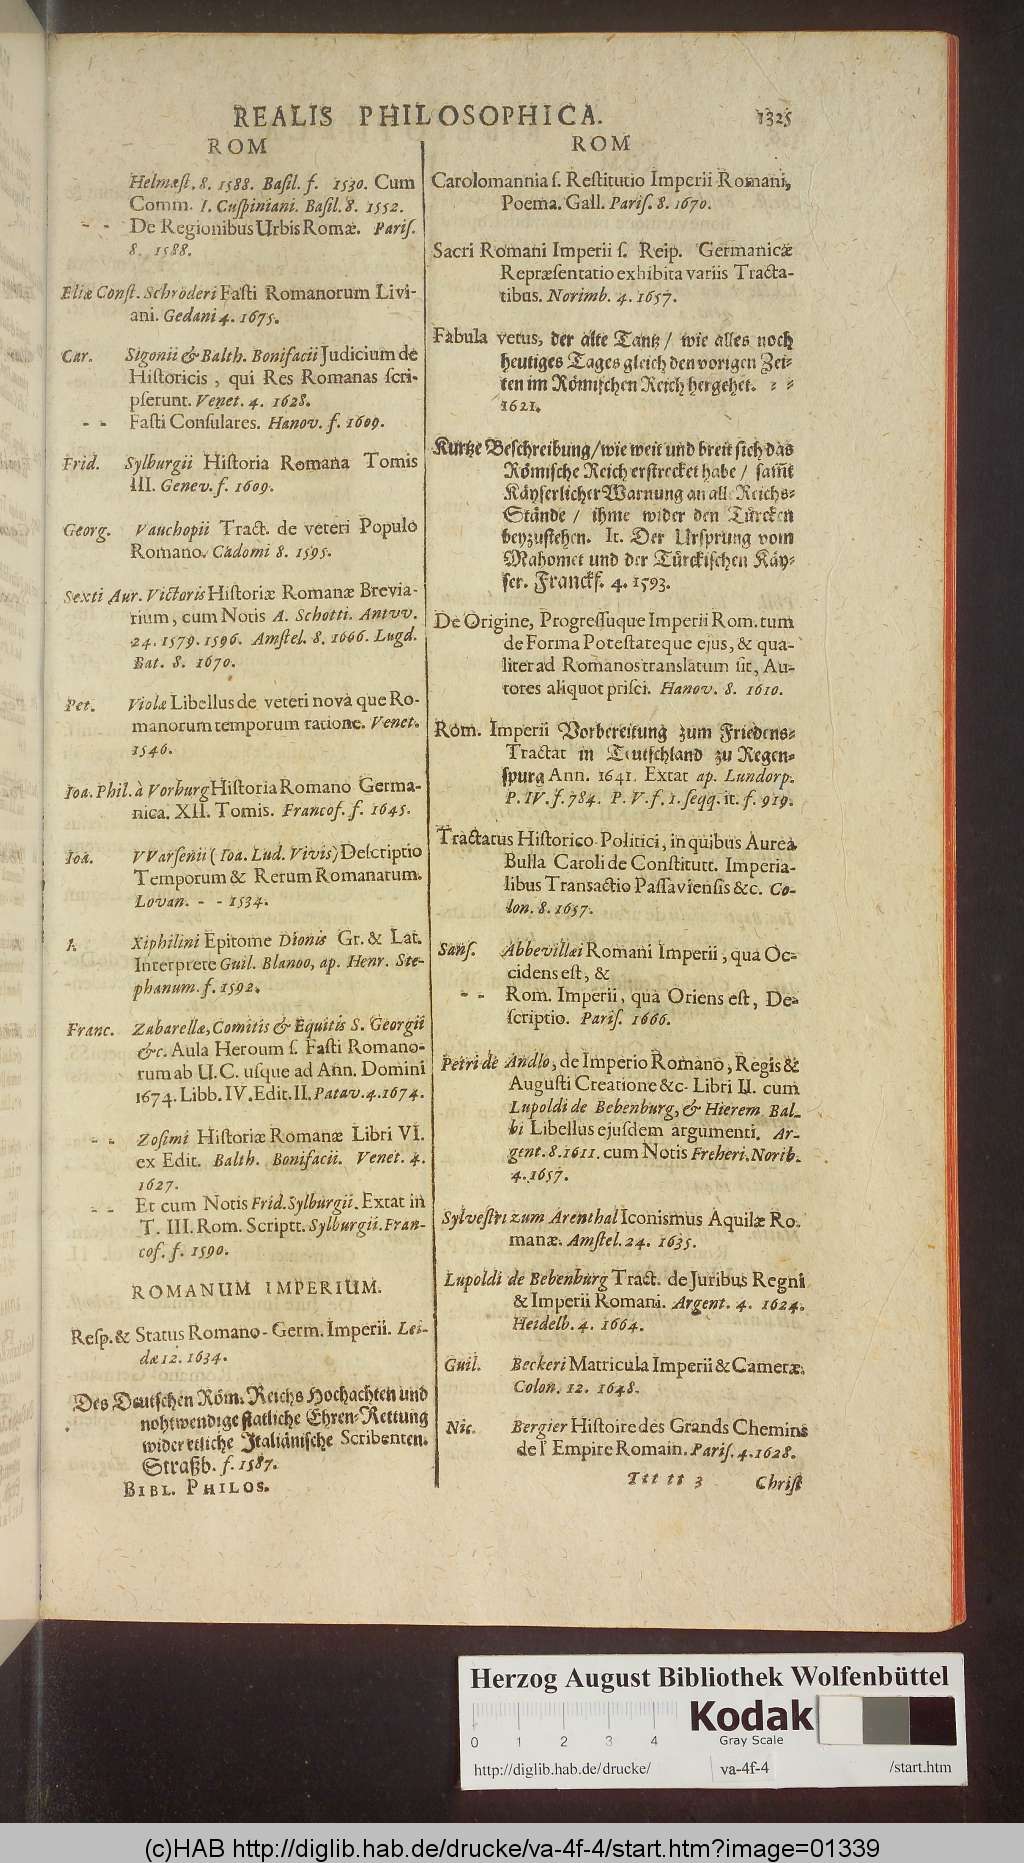 REALIS PHILOSOPHICA. 1325
ROM
Helmæst. 8. 1588. Basil. f. 1530. Cum
Comm. I. Cuſpiniani. Baſil. 8. 1552.
- - De Regionibus Urbis Romæ. Pariſ.
8. 1588.
Eliæ Conſt. Schröderi Faſti Romanorum Livi-
ani. Gedani 4. 1675.
Car. Sigonii & Balth. Bonifacii Judicium de
Hiſtoricis, qui Res Romanas ſcri-
pſerunt. Venet. 4. 1628.
- - Faſti Conſulares. Hanov. f. 1609.
Frid. Sylburgii Hiſtoria Romana Tomis
III. Genev. f. 1609.
Georg. Vauchopii Tract. de veteri Populo
Romano. Cadomi 8. 1595.
Sexti Aur. Victoris Hiſtoriæ Romanæ Brevia-
rium, cum Notis A. Schotti. Antvv.
24. 1579. 1596. Amſtel. 8. 1666. Lugd.
Bat. 8. 1670.
Pet. Violæ Libellus de veteri novà que Ro-
manorum temporum ratione. Venet.
1546.
Ioa. Phil. à Vorburg Hiſtoria Romano Germa-
nica. XII. Tomis. Francof. f. 1645.
Ioa. VVarſenii (Ioa. Lud. Vivis) Deſcriptio
Temporum & Rerum Romanarum.
Lovan. - - 1534.
I. Xiphilini Epitome Dionis Gr. & Lat.
Interprete Guil. Blanoo, ap. Henr. Ste-
phanum. f. 1592.
Franc. Zabarellæ, Comitis & Equitis S. Georgii
&c. Aula Heroum ſ. Faſti Romano-
rum ab U.C. uſque ad Ann. Domini
1674. Libb. IV. Edit. II. Patav. 4. 1674.
- - Zoſimi Hiſtoriæ Romanæ Libri VI.
ex Edit. Balth. Bonifacii. Venet. 4.
1627.
- - Et cum Notis Frid. Sylburgii. Extat in
T. III. Rom. Scriptt. Sylburgii. Fran-
cof. f. 1590.
ROMANUM IMPERIUM.
Reſp. & Status Romano-Germ. Imperii. Lei-
dæ 12. 1634.
Des Deutſchen Röm. Reichs Hochachten und
nohtwendige ſtatliche Ehren-Rettung
wider etliche Italiänische Scribenten.
Straßb. f. 1587.
BIBL. PHILOS.
ROM
Carolomannia ſ. Reſtitutio Imperii Romani,
Poema. Gall. Pariſ. 8. 1670.
Sacri Romani Imperii ſ. Reip. Germanicæ
Repræſentatio exhibita variis Tracta-
tibus. Norimb. 4. 1657.
Fabula vetus, der alte Tantz / wie alles noch
heutiges Tages gleich den vorigen Zei-
ten im Römiſchen Reich hergehet. - -
1621.
Kurtze Beſchreibung / wie weit und breit ſich das
Römiſche Reich erſtrecket habe / ſam̃t
Käyſerlicher Warnung an alle Reichs-
Stände / ihme wider den Türcken
beyzuſtehen. It. Der Urſprung vom
Mahomet und der Türckiſchen Käy-
ſer. Franckf. 4. 1593.
De Origine, Progreſſuque Imperii Rom. tum
de Forma Poteſtateque ejus, & qua-
liter ad Romanos translatum ſit, Au-
tores aliquot priſci. Hanov. 8. 1610.
Rom. Imperii Vorbereitung zum Friedens-
Tractat in Teutſchland zu Regen-
ſpurg Ann. 1641. Extat ap. Lundorp.
P. IV. f. 784. P. V. f. 1. ſeqq. it. f. 919.
Tractatus Hiſtorico-Politici, in quibus Aurea
Bulla Caroli de Conſtitutt. Imperia-
libus Transactio Paſſavienſis &c. Co-
lon. 8. 1657.
Sanſ. Abbevillæi Romani Imperii, qua Oc-
cidens eſt, &
- - Rom. Imperii, quà Oriens eſt, De-
ſcriptio. Pariſ. 1666.
Petri de Andlo, de Imperio Romano, Regis &
Auguſti Creatione &c. Libri II. cum
Lupoldi de Bebenburg, & Hierem. Bal-
bi Libellus ejuſdem argumenti. Ar-
gent. 8. 1611. cum Notis Freheri. Norib.
4. 1657.
Sylveſtri zum Arenthal Iconismus Aquilæ Ro-
manæ. Amſtel. 24. 1635.
Lupoldi de Bebenburg Tract. de Juribus Regni
& Imperii Romani. Argent. 4. 1624.
Heidelb. 4. 1664.
Guil. Beckeri Matricula Imperii & Cameræ.
Colon. 12. 1648.
Nic. Bergier Hiſtoire des Grands Chemins
de l' Empire Romain. Pariſ. 4. 1628.
Ttt tt 3 Chriſt
Herzog August Bibliothek Wolfenbüttel
Kodak
Gray Scale
0 1 2 3 4
http://diglib.hab.de/drucke/ va-4f-4 /start.htm
(c)HAB http://diglib.hab.de/drucke/va-4f-4/start.htm?image=01339